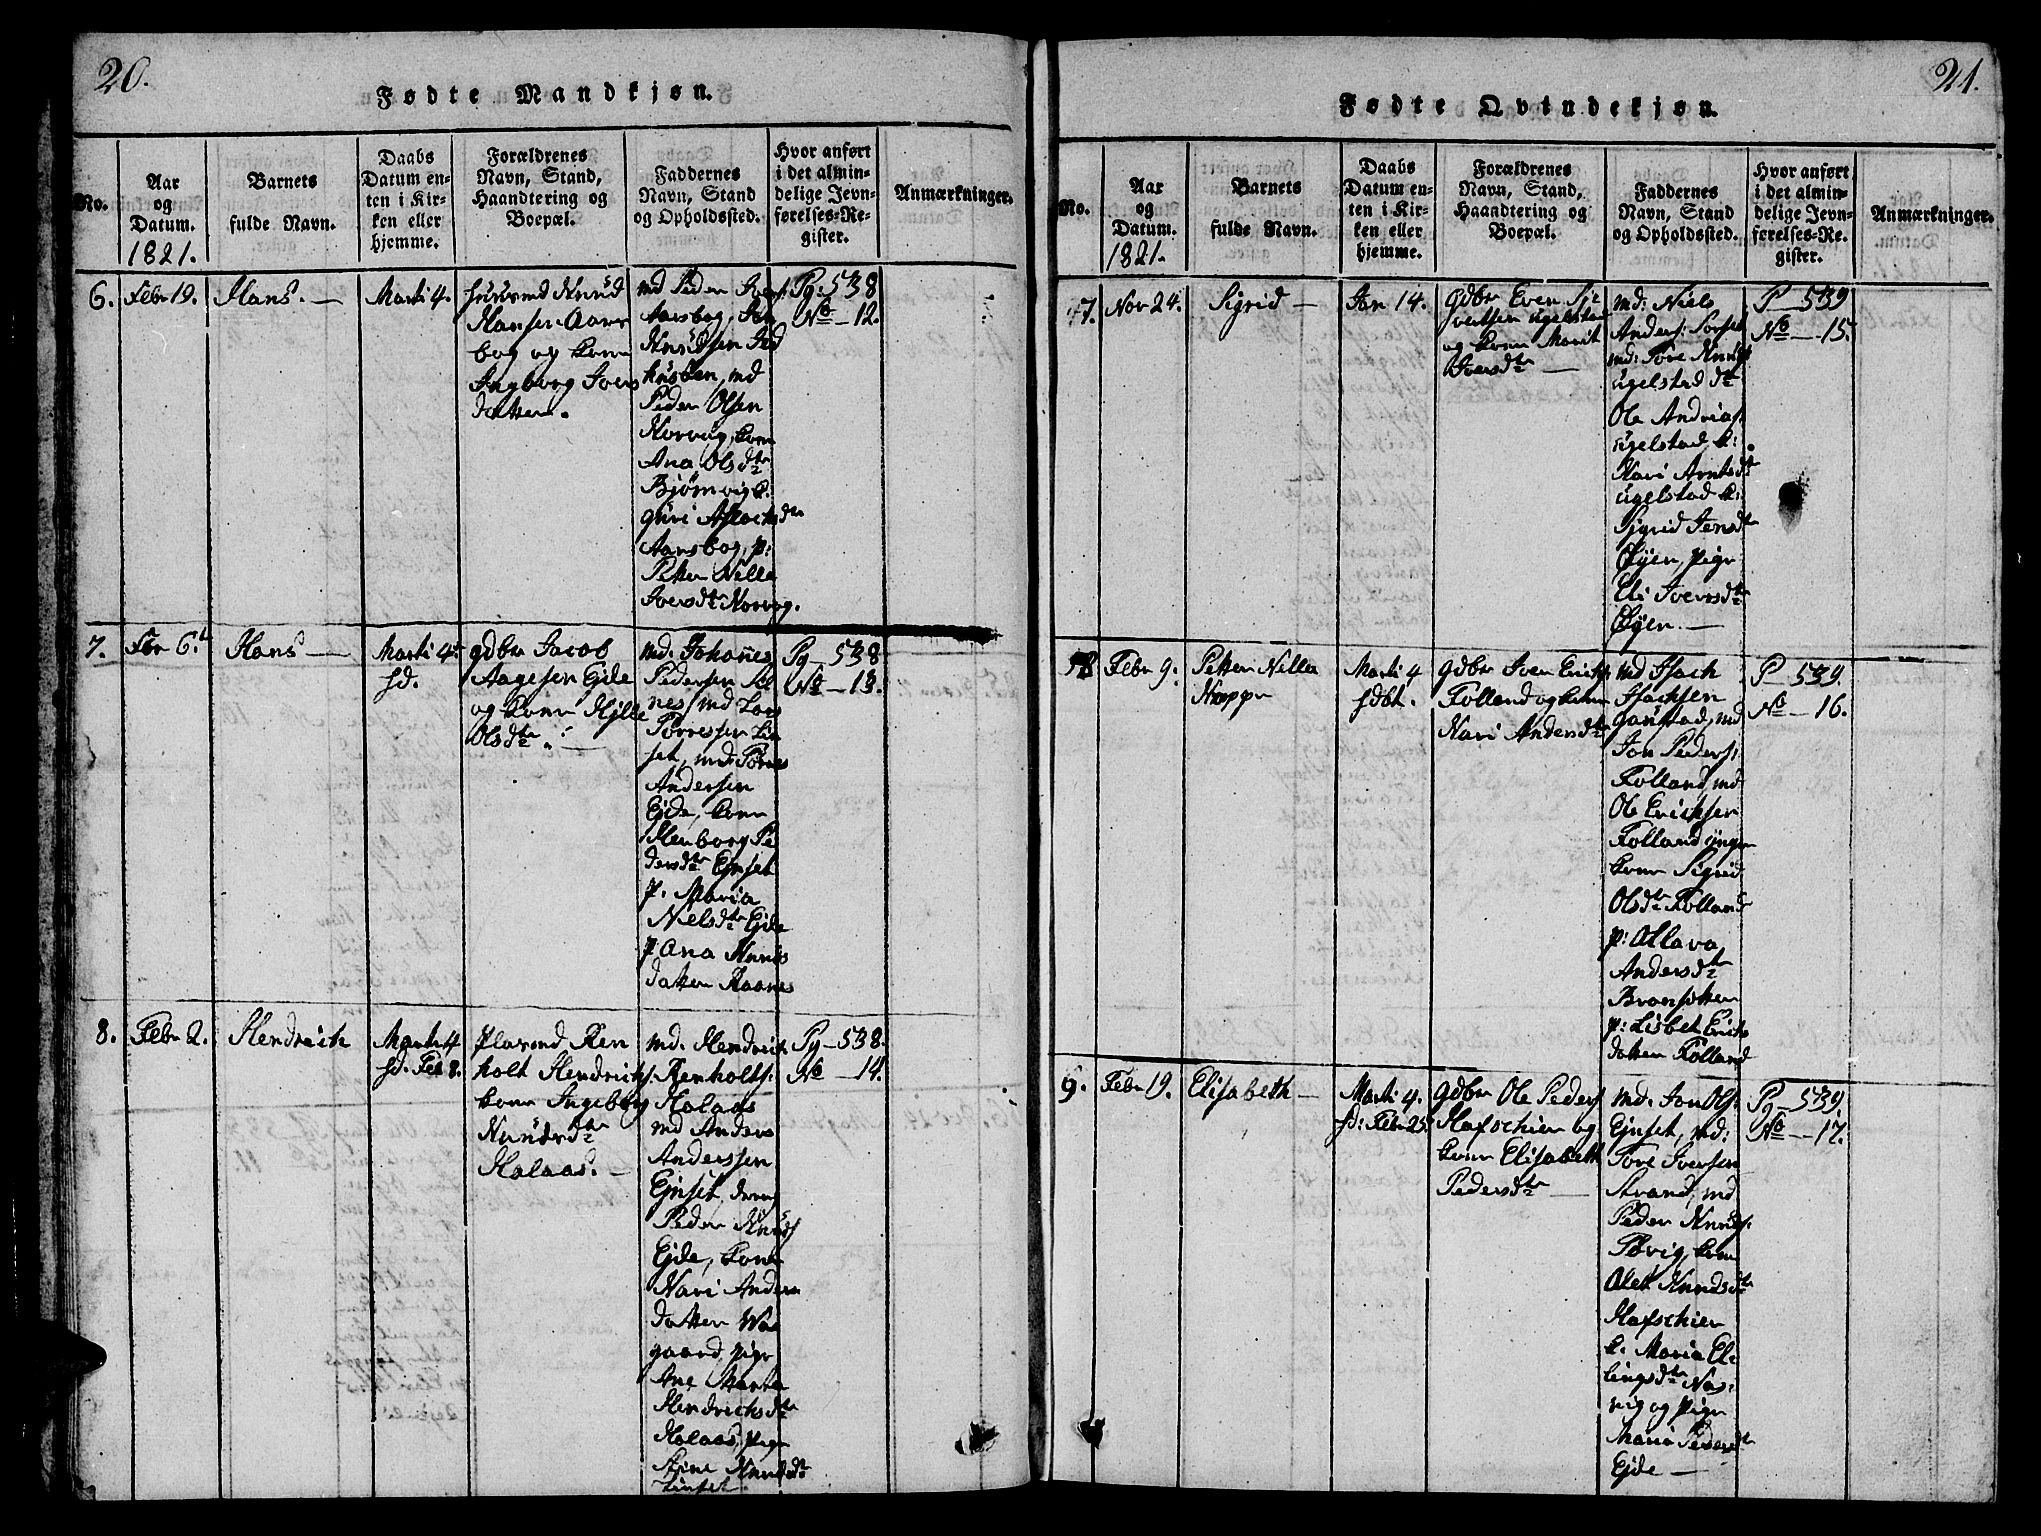 20.
Fødte Mandkjøn.
No.
Aar
og
Datum.
1821.
Barnets
fulde Navn.
Daabs
Datum en-
ten i Kir-
ken eller
hjemme.
Forældrenes
Navn, Stand,
Haandtering og
Boepæl.
Faddernes
Navn, Stand
og Opholdssted.
Hvor anført
i det almin-
delige Jevn-
førelses-Re-
gister.
Anmærkninger.
6.
Febr 19.
Hans. —
Marti 4.
Knud
Hansen Aars
bog og kone
Ingborg Ivers
datter.
md Peder Ivers:
Aarsbog, Jon
Knudsen
md
Peder Olsen
Norvug, kone
Ana Olsdtr
Bjørnvig k.
Guri Aslachsdtr
Aarsbog, p:
Petter Nille
Iversdtr Norvog.
Pg: 538
No — 12.
7.
Febr 6t
Hans —
Marti 4.
hd.
gdbr Jacob
Aagesen Ejde
og kone Hylle
Olsdtr. —
md. Johannes
Pedersen
nes, md Lars
Torresen
set, md. Torres
Andersen
Ejde, kone
Henborg Pe
dersdtr Ejnset
p. Maria
Nielsdtr Ejde
p. Ana Knuds
datter Kaanes
Pg — 538
No — 13.
8.
Febr 2.
Hendrich
Marti 4
hd. Feb 8.
Plasmd Ren
holt Hendrichs:
kone Ingeborg
Knudsdtr
Halaas. —
md. Hendrich
Renholts:
Halaas
md Anders
Anderssen
Ejnset, dreng
Peder Knuds
Ejde, kone
Kari Anders
datter Waa
gaard, pige
Ane Marta
Hendrichsdtr
Halaas, pige
Knudsdtr
Pg — 538.
No — 14.
21.
Fødte Qvindekjøn.
No.
Aar
og
Datum.
1821.
Barnets
fulde Navn.
Daabs
Datum en-
ten i Kir-
ken eller
hjemme.
Forældrenes
Navn, Stand,
Haandtering og
Boepæl.
Faddernes
Navn, Stand
og Opholdssted.
Hvor anført
i det almin-
delige Jevn-
førelses-Re-
gister.
Anmærkninger.
7.
Nov 24.
Sigrid —
Jan 14.
gdbr Even Si
vertsen Ugelstad
og kone Marit
Iversdtr —
md: Niels
Anders: Torset
md: Tore Knuds
Ugelstad dtr
Ole Andrias
Ugelstad k:
Kari Arntsdtr
Ugelstad k:
Sigrid Jensdtr
Øyen, pige
Eli Iversdtr
Øyen. —
P — 539
No — 15.
8
Febr 9.
Petter Nilla
Noppe
Marti 4
hdbt.
gdbr Iver Erichs
Folland og kone
Kari Andersdtr
md Isach
Isachsen
Gaustad, md
Jon Peders:
Folland, md
Ole Erichsen
Folland ynger
kone Sigrid
Olsdtr Folland
p: Ollava
Andersdtr
Bronsletten
p: Lisbet Erichs
datter Folland
P — 539.
No — 16.
9.
Febr 19.
Elisabeth —
Marti 4.
hd: Febr 25
gdbr Ole Peders
Hafschier og
kone Elisabeth
Pedersdtr —
md. Jon Ols:
Ejnset, md:
Tore Iversen
Strand, md
Peder Knuds:
Tøvig, kone
Olet Knudsdtr
Hafschier
k. Maria El:
lingsdtr Nas:
vig og pige
Maria Pedersdtr
Ejde —
Pg — 539.
No — 17.